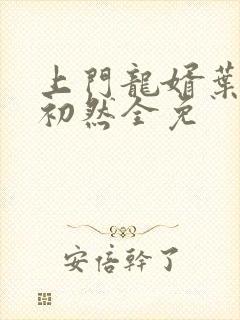 上門龍婿葉
初然全免
安倍幹了